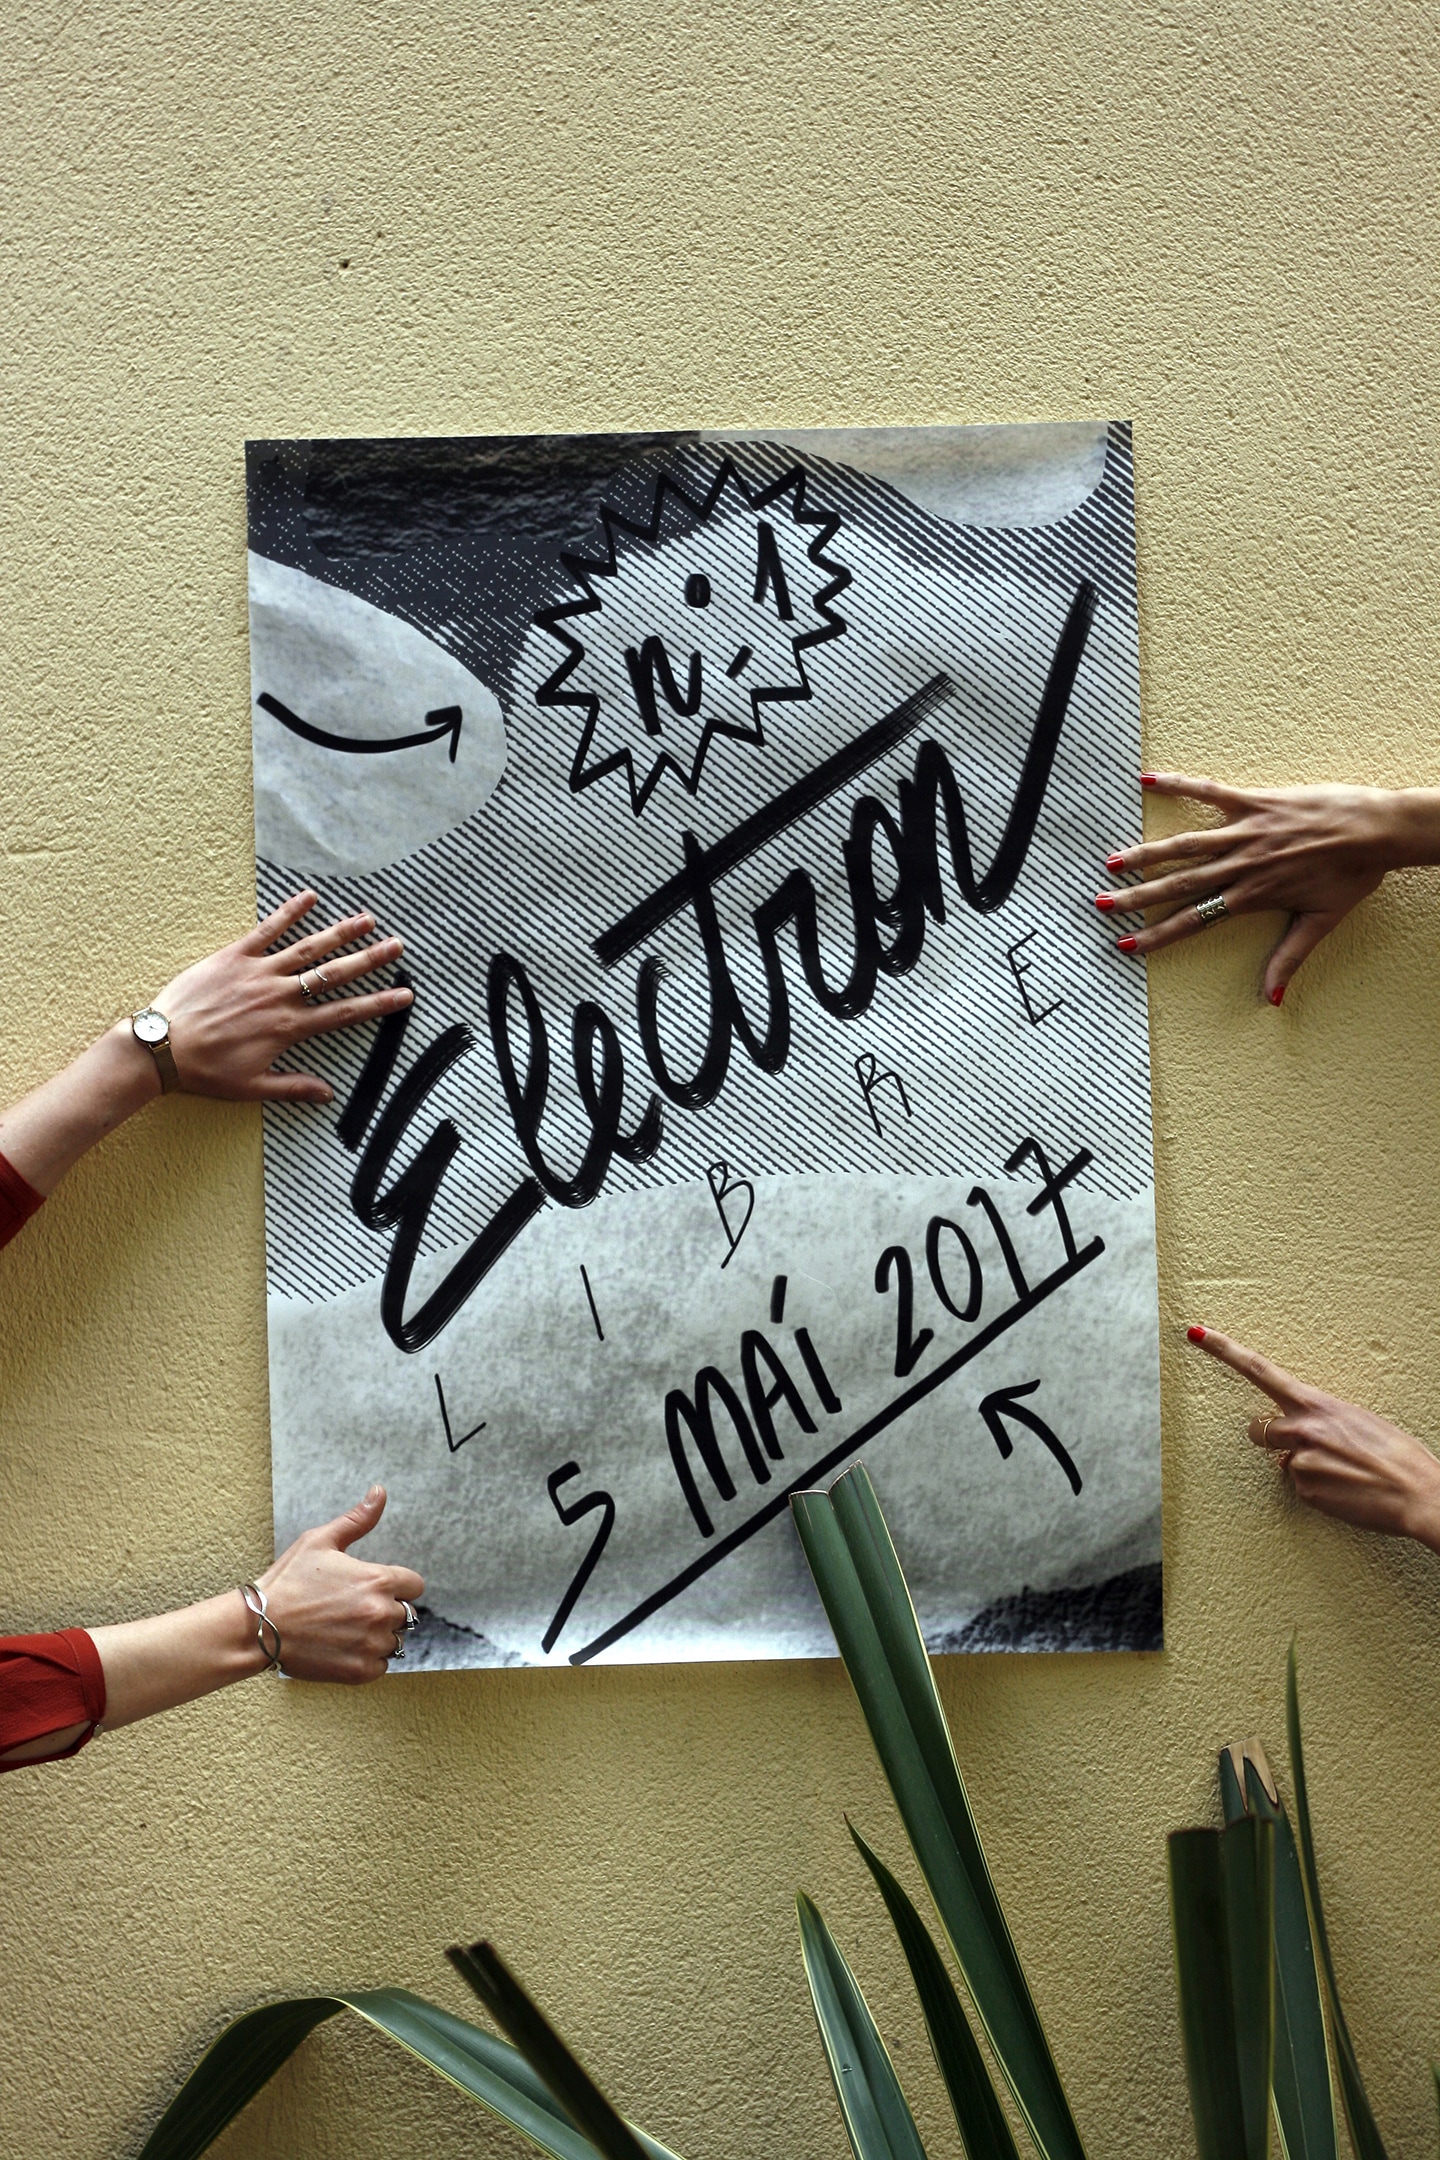 n°1
Electron
LIBRE
5 MAI 2017